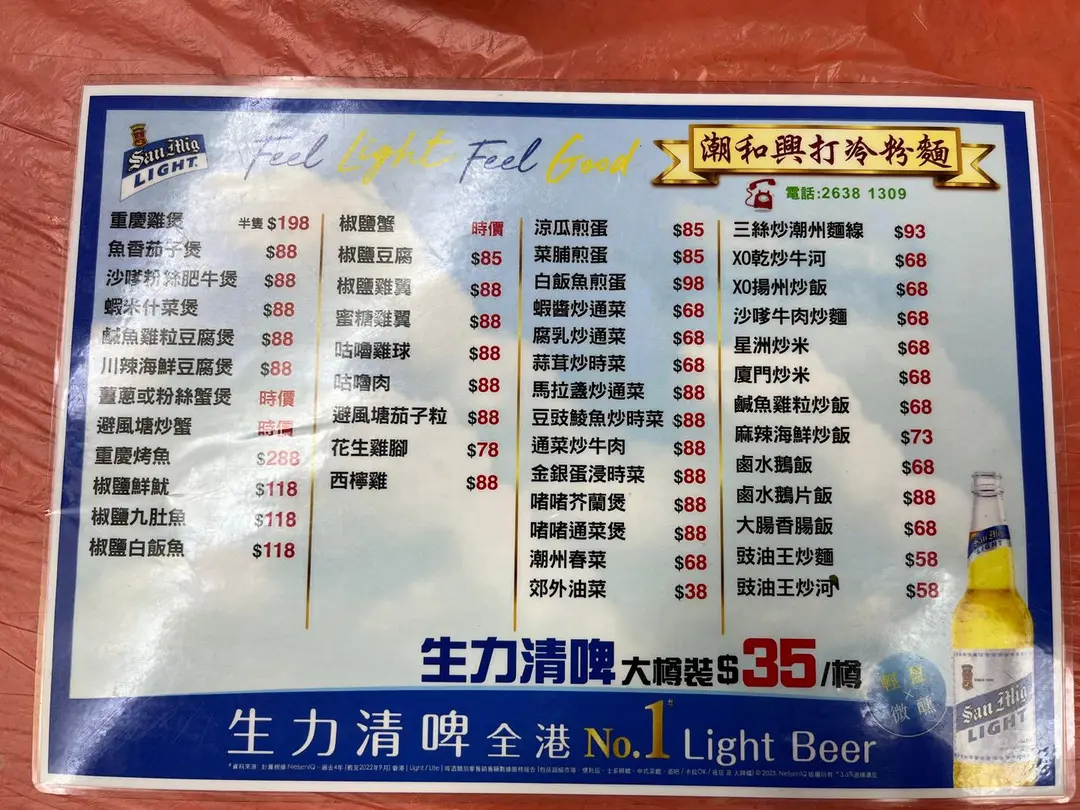 San Mig
LIGHT
Feel Light Feel Good
潮和興打冷粉麵
電話:2638 1309
重慶雞煲 半隻 $198
魚香茄子煲 $88
沙嗲粉絲肥牛煲 $88
蝦米什菜煲 $88
鹹魚雞粒豆腐煲 $88
川辣海鮮豆腐煲 $88
薑蔥或粉絲蟹煲 時價
避風塘炒蟹 時價
重慶烤魚 $288
椒鹽鮮魷 $118
椒鹽九肚魚 $118
椒鹽白飯魚 $118
椒鹽蟹 時價
椒鹽豆腐 $85
椒鹽雞翼 $88
蜜糖雞翼 $88
咕嚕雞球 $88
咕嚕肉 $88
避風塘茄子粒 $88
花生雞腳 $78
西檸雞 $88
涼瓜煎蛋 $85
菜脯煎蛋 $85
白飯魚煎蛋 $98
蝦醬炒通菜 $68
腐乳炒通菜 $68
蒜茸炒時菜 $68
馬拉盞炒通菜 $88
豆豉鯪魚炒時菜 $88
通菜炒牛肉 $88
金銀蛋浸時菜 $88
啫啫芥蘭煲 $88
啫啫通菜煲 $88
潮州春菜 $68
郊外油菜 $38
三絲炒潮州麵線 $93
XO乾炒牛河 $68
XO揚州炒飯 $68
沙嗲牛肉炒麵 $68
星洲炒米 $68
廈門炒米 $68
鹹魚雞粒炒飯 $68
麻辣海鮮炒飯 $73
鹵水鵝飯 $68
鹵水鵝片飯 $88
大腸香腸飯 $68
豉油王炒麵 $58
豉油王炒河 $58
生力清啤 大樽裝 $35/樽
輕盈
微醺
San Mig
LIGHT
生力清啤 全港 No.1 Light Beer